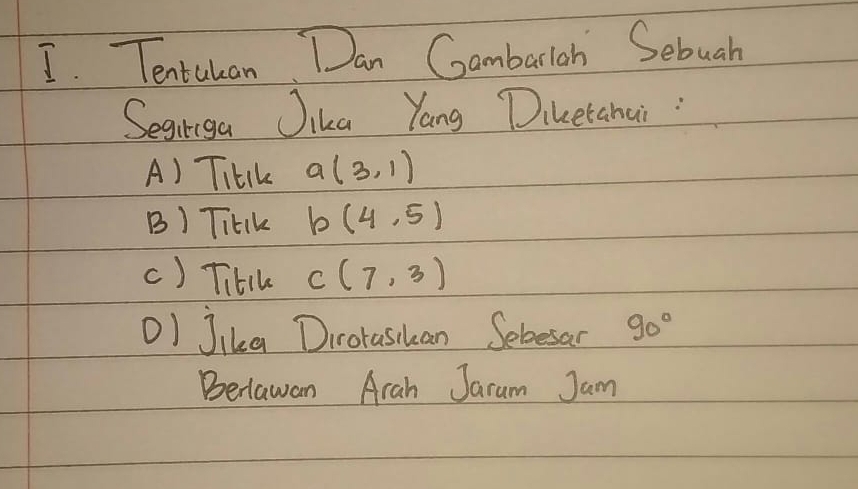 I. Tentukan Dan Gambarlah Sebuah
Segitiga Jika Yang Diketahui :
A) Titik a(3,1)
B) Titik b(4,5)
C) Titik c(7,3)
D) Jika Dirotasikan Sebesar 90°
Berlawan Arah Jarum Jam